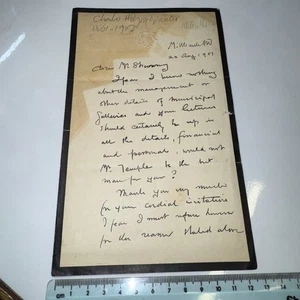 Charles Holroyd
1861-1917
20 Aug. 1901
Dear Mr
I fear I know nothing
about the management or
other details of municipal
Galleries and your lecturer
should certainly be up in
all the details, financial
and personal. would not
Mr Temple be the best
man for you?
Thank you very much
for your cordial invitation
I fear I must refuse
for the reason stated above
0 1 2 3 4 5 6 7 8 9 10 11 12 13 14